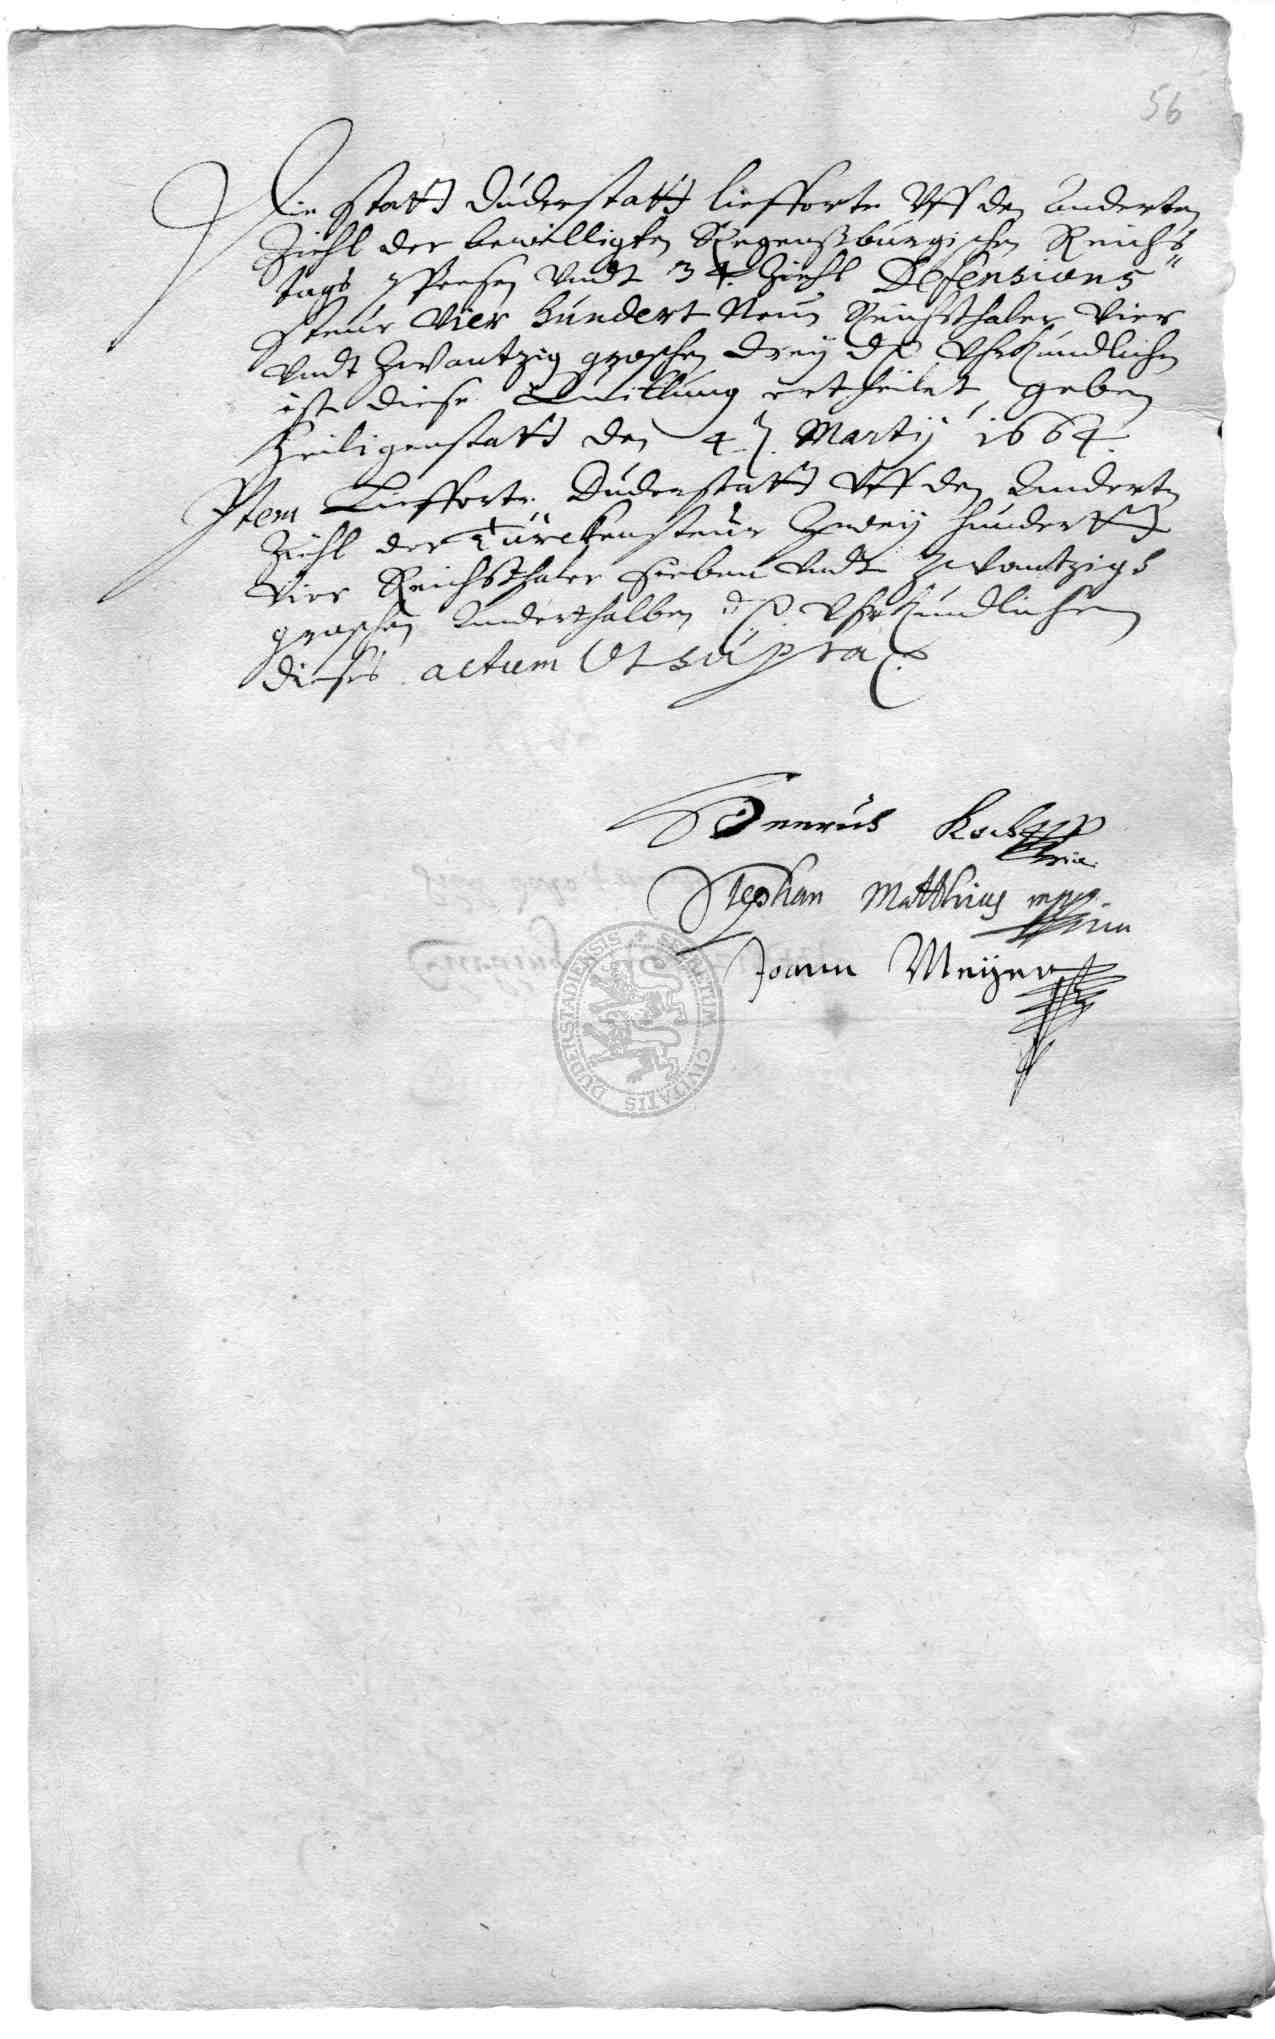 56
Die statt Duderstatt liefforte Vff den Anderten
Ziehl der bewilligten Regenßburgischen Reichs=
tags Spesen Vndt 3 t. Ziehl Defensions
steur Vier hundert Neun Reichsthaler Vier
Vndt Zwantzig groschen drey d. Vhrkundlichen
ist diese Quittung ertheilet, geben
Heiligenstatt den 4. Martij 1664
Item Liefforte Duderstatt Vff den Anderten
Ziehl der Türckensteur Zweij hundertt
Vier Reichsthaler sieben Vndt Zwantzigs
groschen Anderthalben d. Vhrkundlichen
dieses actum Vt supra
Henricus Koch mppria
Stephan Matthius mppria
Joann Meyer
SIGILLUM CIVITATIS DUDERSTADIENSIS